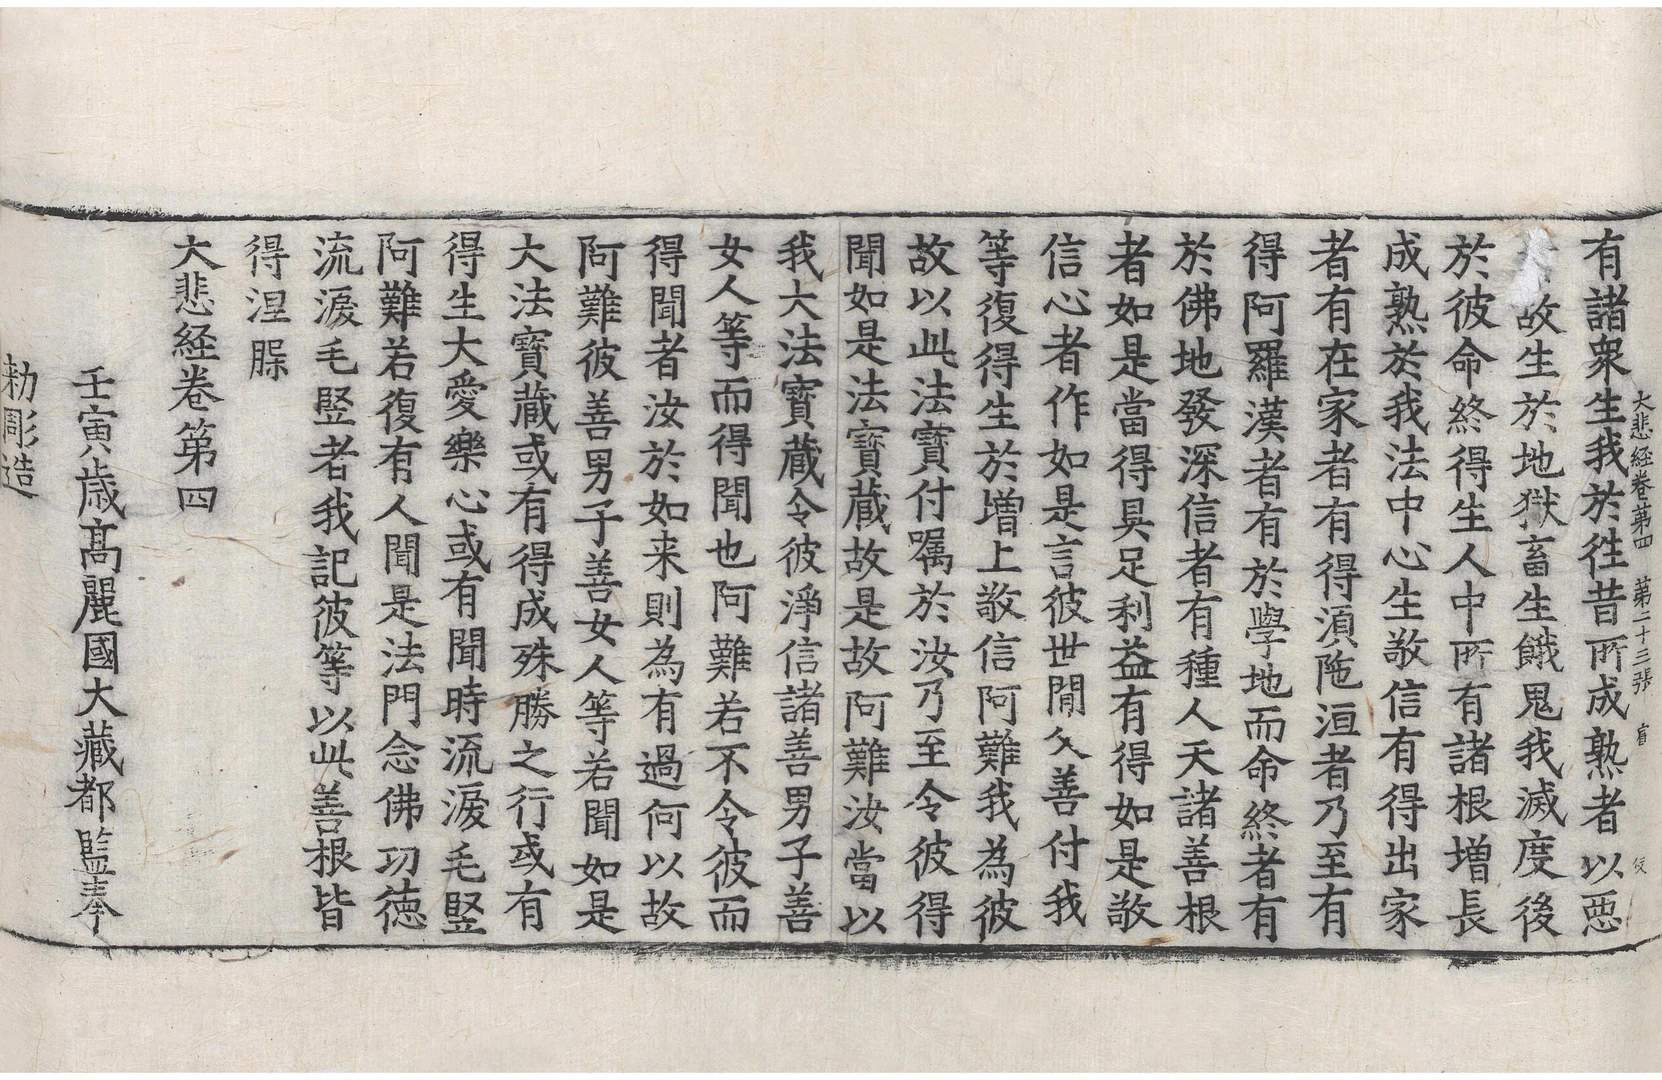 大悲経卷第四 第二十三張 官
有諸衆生我於往昔所成熟者以惡
故生於地獄畜生餓鬼我滅度後
於彼命終得生人中所有諸根增長
成熟於我法中心生敬信有得出家
者有在家者有得須陁洹者乃至有
得阿羅漢者有於學地而命終者有
於佛地發深信者有種人天諸善根
者如是當得具足利益有得如是敬
信心者作如是言彼世間父善付我
等復得生於增上敬信阿難我為彼
故以此法寶付嘱於汝乃至令彼得
聞如是法寶藏故是故阿難汝當以
我大法寶藏令彼淨信諸善男子善
女人等而得聞也阿難若不令彼而
得聞者汝於如来則為有過何以故
阿難彼善男子善女人等若聞如是
大法寶藏或有得成殊勝之行或有
得生大愛樂心或有聞時流淚毛竪
阿難若復有人聞是法門念佛功德
流淚毛竪者我記彼等以此善根皆
得涅㬌
大悲経卷第四
壬寅歲高麗國大藏都監奉
勑彫造